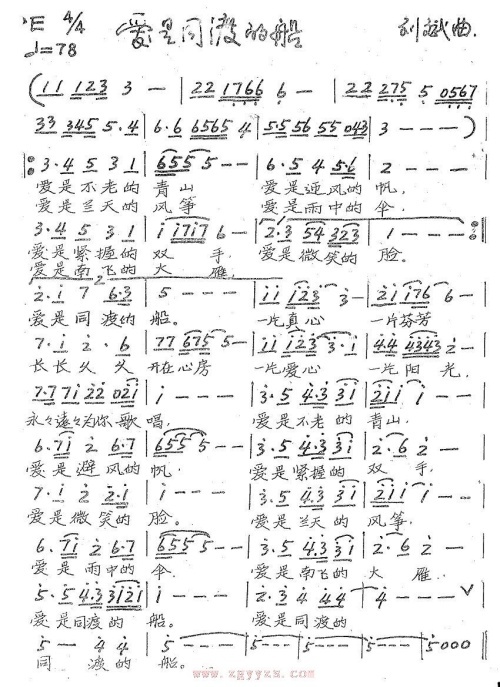 ♭E 4/4 爱是同渡的船 刘斌曲.
♩=78
(11 123 3 – | 22 1766 6 – | 22 275 5 0567
33 345 5·4 | 6·6 6565 4 | 5·5 56 55 043 | 3 – – – )
3·4 5 3 1 | 6555 5 – – | 6·5 4 5·6 | 2 – – –
爱是不老的 青山 爱是迎风的 帆,
爱是兰天的 风筝 爱是雨中的 伞.
3·4 5 3 1 | i i7i7 6 – | 2·3 54 323 | 1 – – –
爱是紧握的 双 手, 爱是微笑的 脸。
爱是南飞的 大 雁.
2
2·i 7 6·3 | 5 – – – | ii i23 3 – | 2i i76 6 –
爱是同渡的 船。 一片真心 一片芬芳
7·i 2·6 | 77 675 5 – | ii i23 3·i | 44 4343 2 –
长长久久 开在心房 一片爱心 一片阳光,
7·7 7i 22 02i | i – – – | 3·5 4·3 3i | 2ii i – –
永々远々为你歌 唱. 爱是不老的 青山.
6·7i 2 6·7 | 6555 5 – – | 3·5 4·3 3i | 2·6 2 –
爱是避风的 帆. 爱是紧握的 双 手.
7·i 2 2·i | i – – – | 3·5 4·3 3i | 2ii i – –
爱是微笑的 脸。 爱是兰天的 风筝.
6·7i 2 6·7 | 6555 5 – – | 3·5 4·3 3i | 2·6 2 –
爱是雨中的 伞. 爱是南飞的 大 雁.
5·5 4·3 3i2i | i – – – | 2·3 4 44 | 4 – – – V
爱是同渡的 船。 爱是同渡的
5 – 4 4 | 5 – – – | 5 – – – | 5 – – – | 5000
同 渡的 船。
www.zgyyxs.com